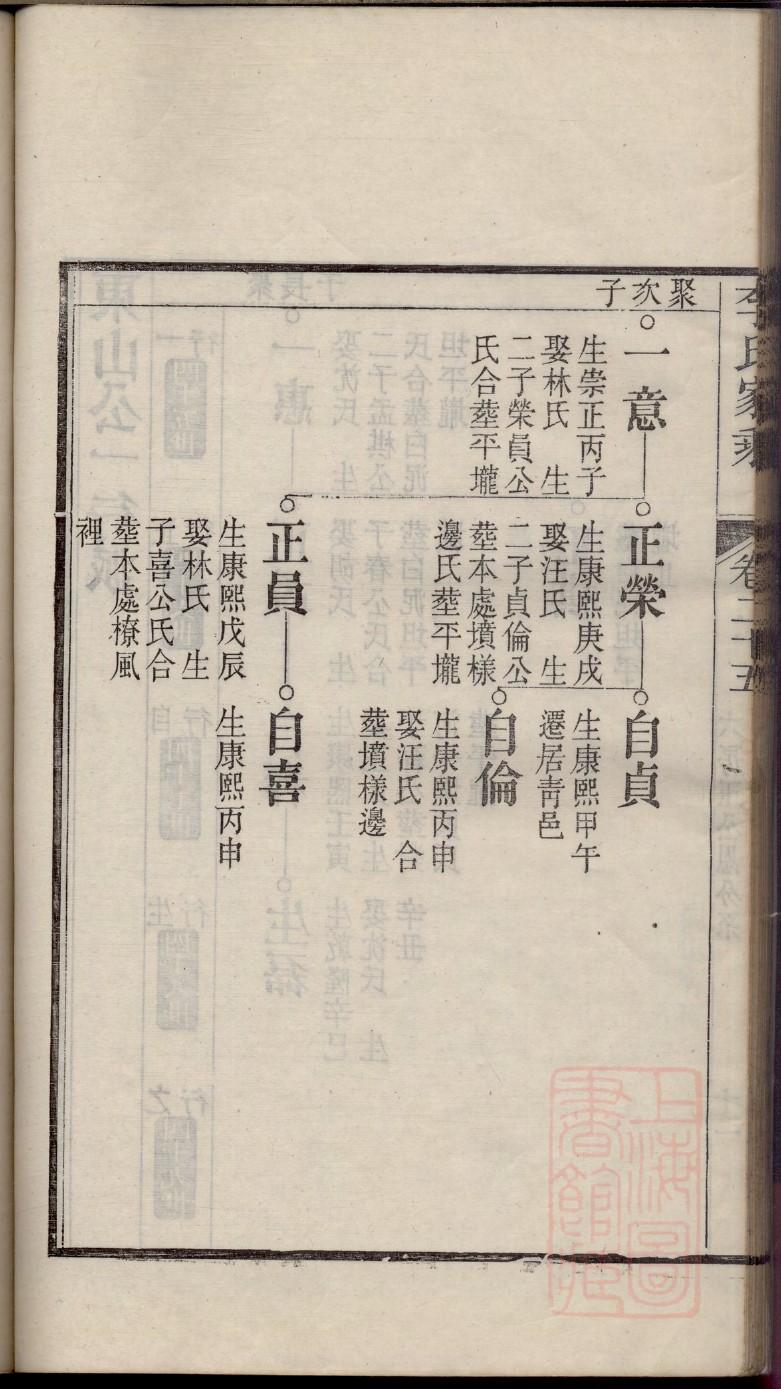 李氏家乘
卷二十五
聚次子
一意
生崇正丙子
娶林氏 生
二子榮員公
氏合塟平壠
正榮
生康熙庚戌
娶汪氏 生
二子貞倫公
塟本處墳様
邊氏塟平壠
自貞
生康熙甲午
遷居靑邑
自倫
生康熙丙申
娶汪氏 合
塟墳様邊
正員
生康熙戊辰
娶林氏 生
子喜公氏合
塟本處橑風
裡
自喜
生康熙丙申
上海圖
書館藏